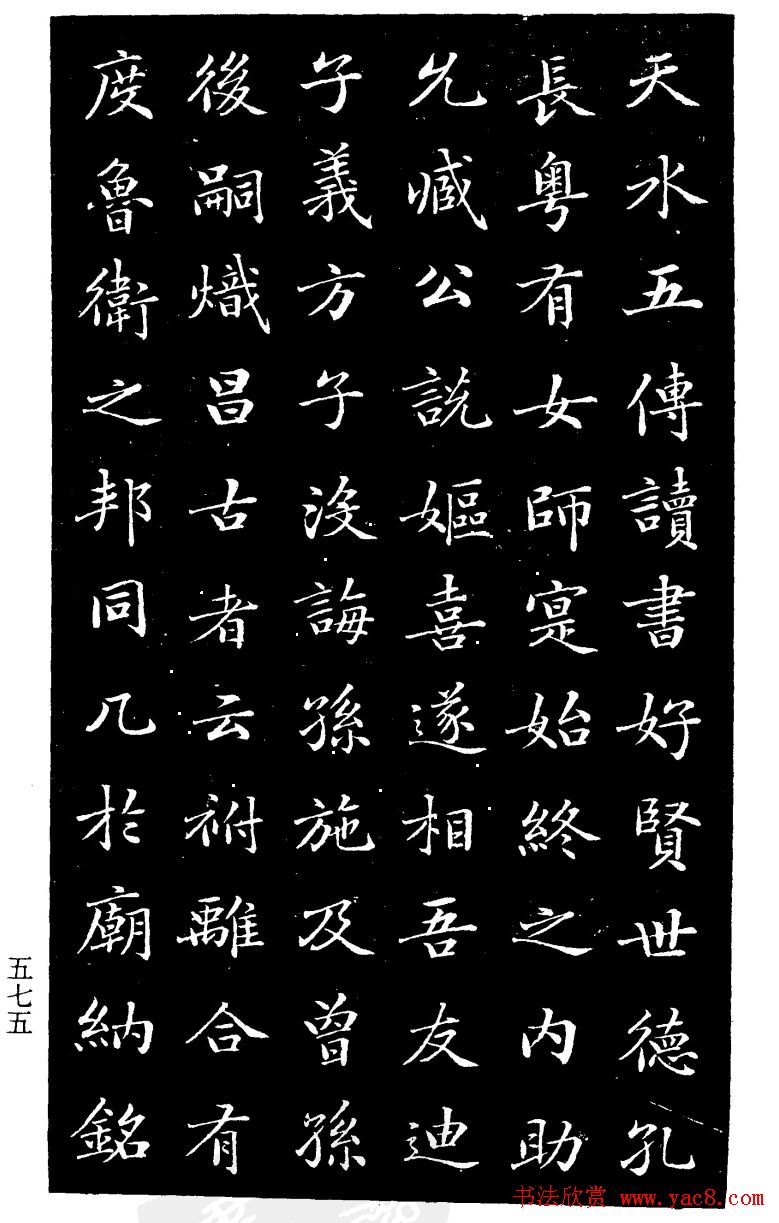 天水五傳讀書好賢世德孔
長粤有女師寔始終之内助
允臧公説嫗喜遂相吾友迪
子義方子没誨孫施及曾孫
後嗣熾昌古者云祔離合有
度魯衛之邦同几於廟納銘
五七五
书法欣赏 www.yac8.com